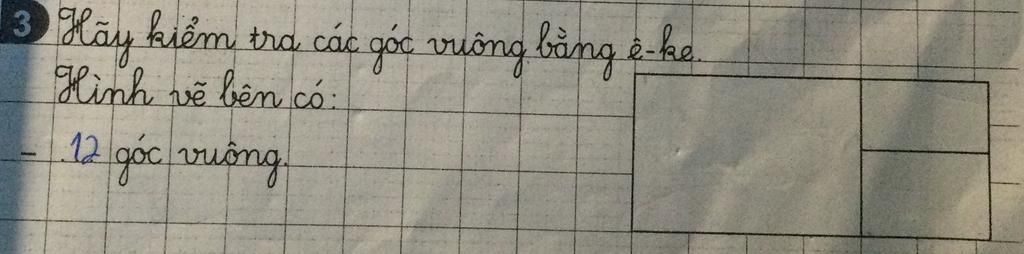 3 Hãy kiểm tra các góc vuông bằng ê-ke.
Hình vẽ bên có:
- 12 góc vuông.